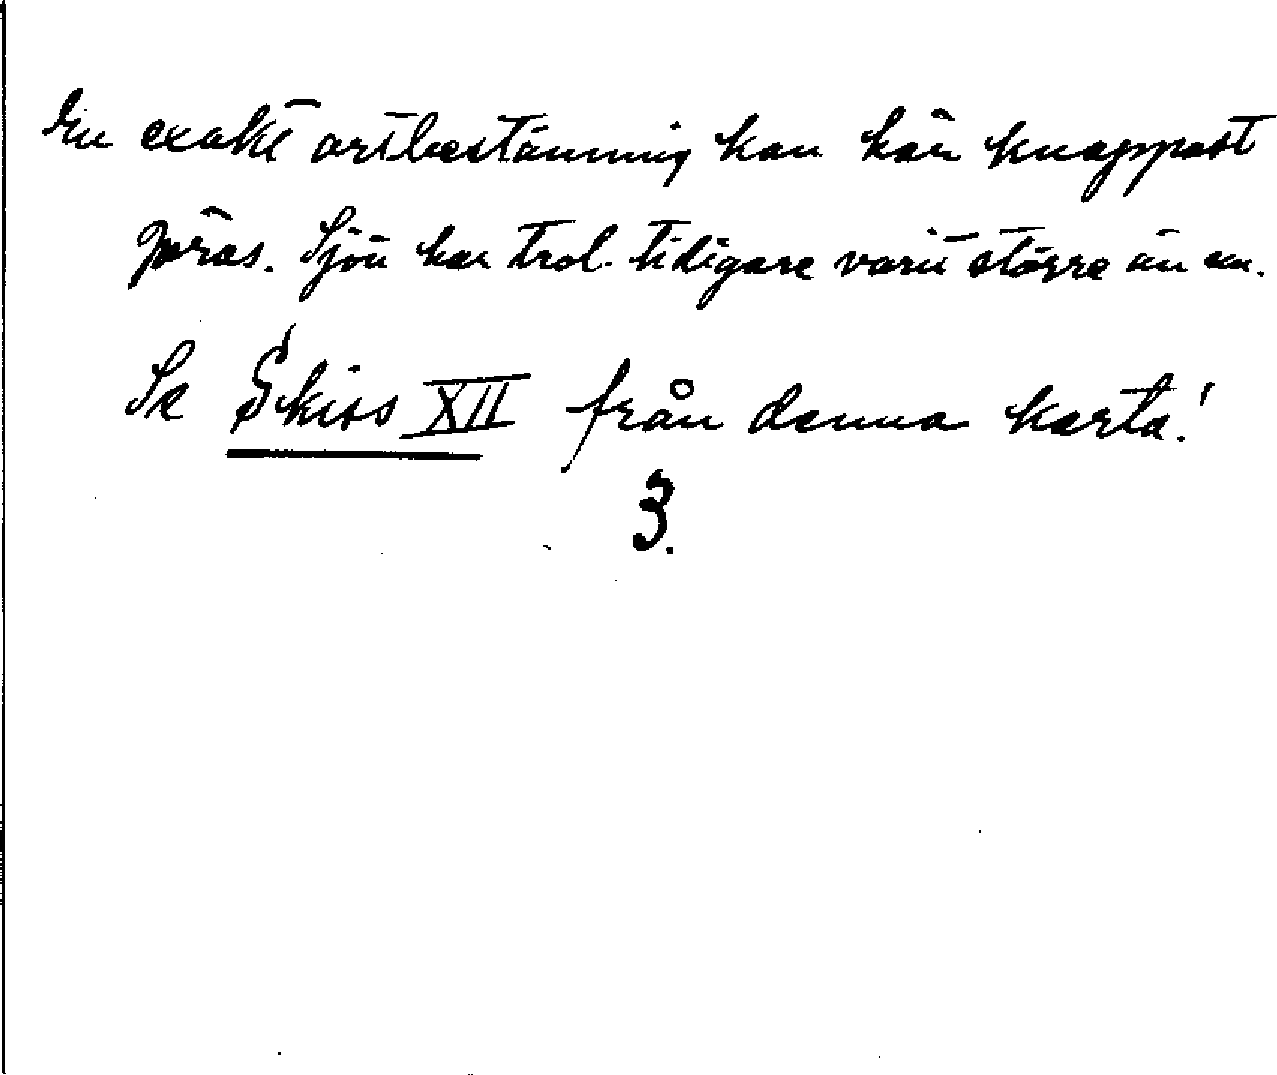 En exakt artbestämning kan här knappast
göras. Sjön har trol. tidigare varit större än nu.
Se Skiss XII från denna karta!
3.